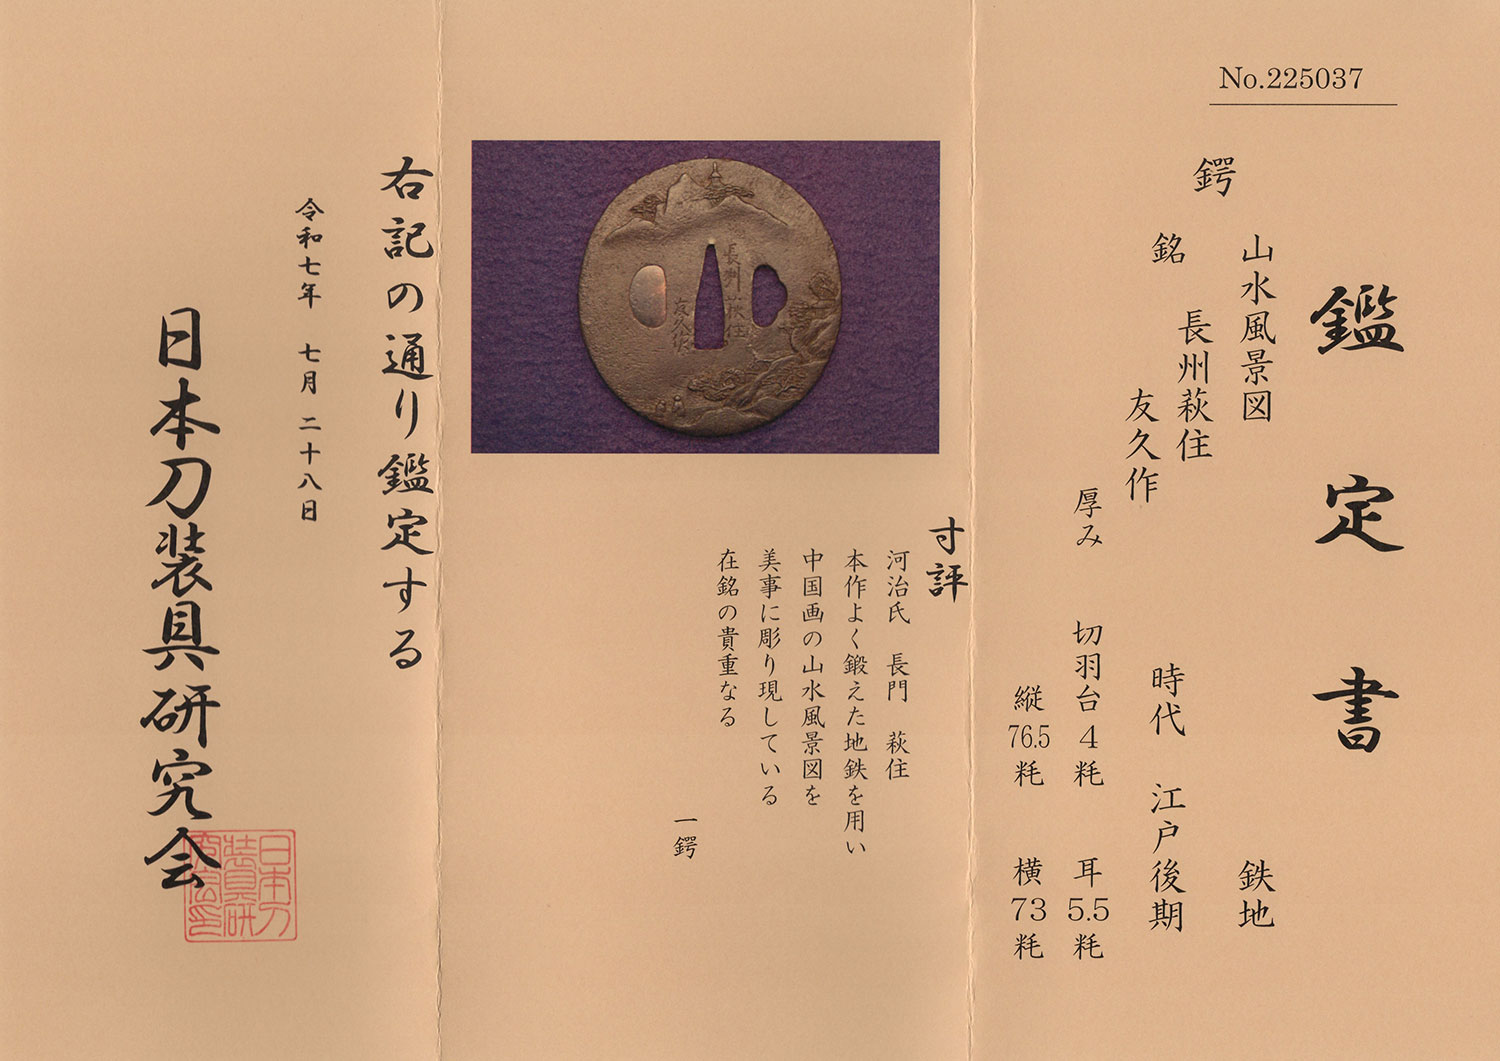 No.225037
鑑定書
鍔
山水風景図
鉄地
銘
長州萩住
友久作
時代 江戸後期
厚み 切羽台4粍 耳5.5粍
縦76.5粍 横73粍
長州萩住
友久作
寸評
河治氏 長門 萩住
本作よく鍛えた地鉄を用い
中国画の山水風景図を
美事に彫り現している
在銘の貴重なる
一鍔
右記の通り鑑定する
令和七年 七月二十八日
日本刀装具研究会
日本刀
装具研
究会印